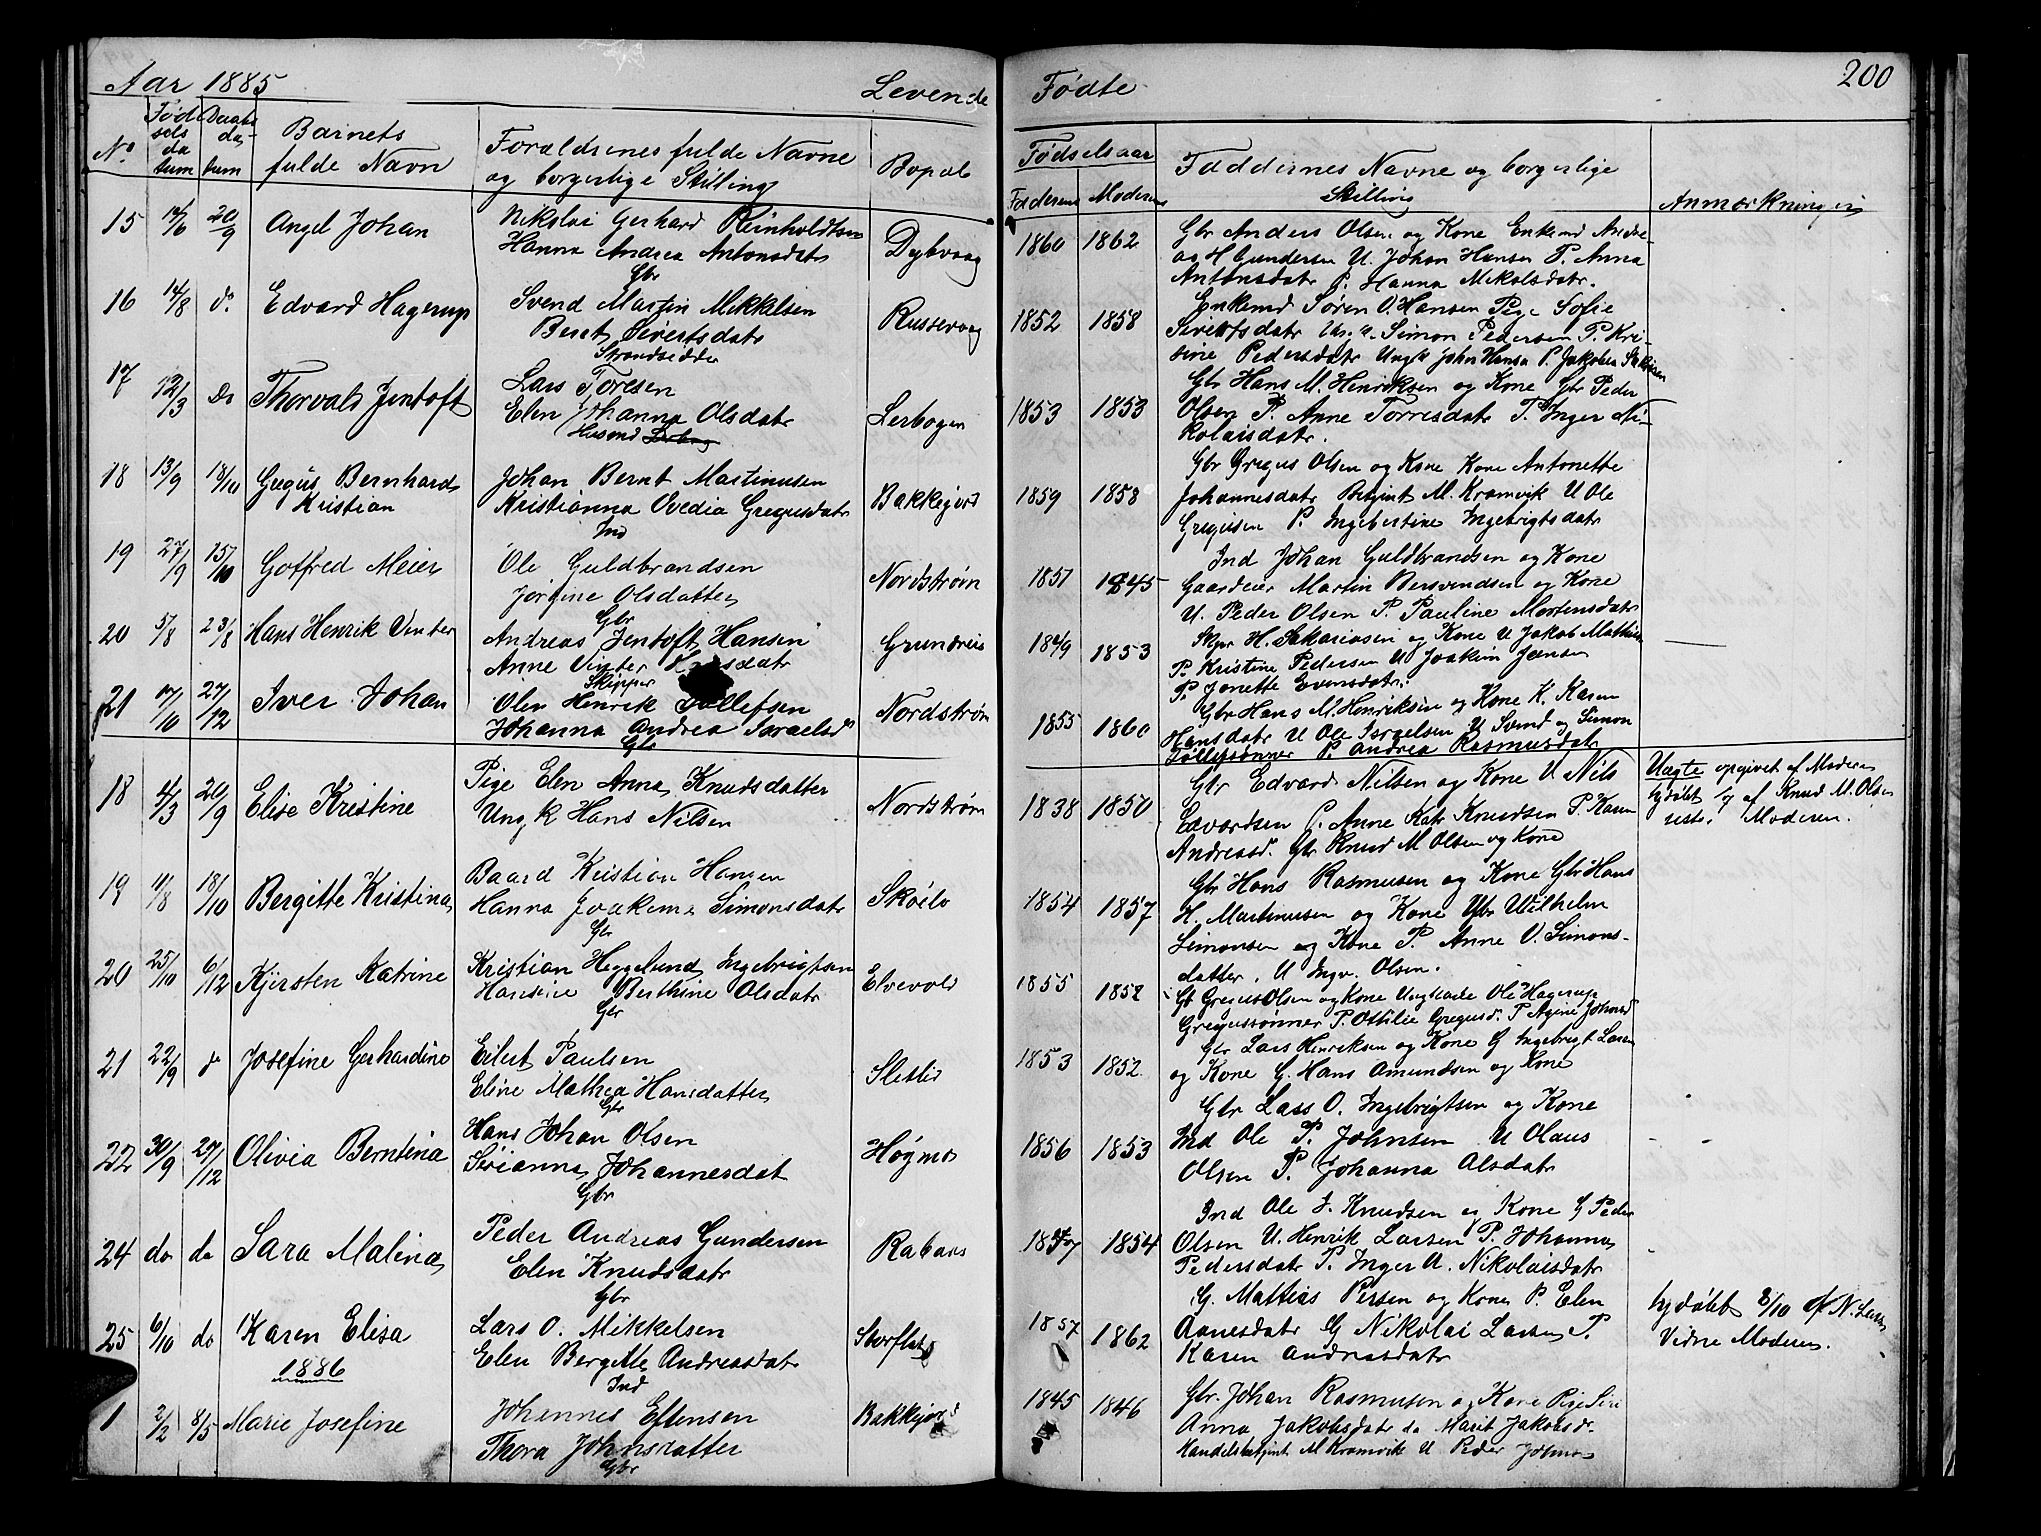 Aar 1885
Levende
Fødte
200
No
Fødselsdatum
Daabsdatum
Barnets fulde Navn
Forældrenes fulde Navne og borgerlige Stilling
Bopæl
Fødselsaar
Faderens
Moderens
Faddernes Navne og borgerlige Stilling
Anmærkninger
15 14/6 20/9 Angel Johan
Nikolai Gerhard Reinholdtsen
Hanna Andrea Antonsdatr
Gbr
Dybvaag
1860 1862
Gbr Anders Olsen og Kone Enkemd Andre-
as H Gundersen U. Johan Hansen P. Anna
Antonsdatr P. Hanna Mikalsdatr.
16 14/8 do Edvard Hagerup
Svend Martin Mikkelsen
Berit Sivertsdatr
Strandsidder
Russevaag
1852 1858
Enkemd Søren O. Hansen Pige Sofie
Sivertsdatr Ung. k. Simon Pedersen P. Kri-
sine Pedersdatr Ungk John Hansen P. Jakobea
Gbr Hans M. Henriksen og Kone Gbr Peder
17 12/3 Do Thorvald Jentoft
Lars Toresen
Elen Johanna Olsdatr
Husmd
Lerbogen
1853 1853
Olsen P. Anne Torresdatr P. Inger Ni-
kolaisdatr.
18 13/9 18/10 Gregus Bernhard
Kristian
Johan Bernt Martinusen
Kristianna Ovedia Gregusdatr
Ind
Bakkejord
1859 1858
Gbr Gregus Olsen og Kone Kone Antonette
Johannesdatr Betjent M. Kramvik U Ole
Gregusen P. Ingebertine Ingebrigtsdatr
19 27/9 15/10 Gotfred Meier
Ole Guldbrandsen
Jørgine Olsdatter
Gbr
Nordstrøm
1857 1845
Ind Johan Guldbrandsen og Kone
Gaardeier Martin Bersvendsen og Kone
U. Peder Olsen P. Pauline Mortensdatr
20 5/8 23/8 Hans Henrik Vinter
Andreas Jentoft Hansen
Anne Vinter
Skipper
Grundreis
1849 1853
Skpr H. Sakariasen og Kone U Jakob Mathisen
P. Kristine Pedersen U Joakim Jensen
P. Jonette Evensdatr.
21 17/10 27/12 Iver Johan
Olen Henrik Tollefsen
Johanna Andrea Israelsd
Gbr
Nordstrøm
1855 1860
Gbr Hans M. Henriksen og Kone K. Karen
Hansdatr U Ole Israelsen U Svend og Simon
Tollefsønner P. Andrea Rasmusdatr
18 4/3 20/9 Elise Kristine
Pige Elen Anna Knudsdatter
Ungk Hans Nilsen
Nordstrøm
1838 1850
Gbr Edvard Nilsen og Kone U Nils
Edvardsen P. Anne Katr Knudsen P. Karen
Andreasd. Gbr Knud M Olsen og Kone
Uægte opgivet af Moderen
hjdøbt af Knud M. Olsen
Moderen.
19 11/8 18/10 Bergitte Kristina
Baard Kristian Hansen
Hanna Joakima Simonsdatr
Gbr
Skøelv
1854 1857
Gbr Hans Rasmusen og Kone Gbr Hans
H. Martinusen og Kone Gbr Wilhelm
Simonsen og Kone P. Anne O. Simons-
datter. U Ingv. Olsen.
20 25/10 6/12 Kjersten Katrine
Kristian Heggelund Ingebrigtsen
Hansine Berthine Olsdatr
Gbr
Elvevold
1855 1852
Gb Gregus Olsen og Kone Ungkarle Ole Hagerup
Gregussønner P. Ottilie Gregusd. P Agine Johansd
21 22/9 do Josefine Gerhardine
Eilert Paulsen
Eline Mathea Hansdatter
Gbr
Sletlid
1853 1852
Gbr Lars Henriksen og Kone G Ingebrigt Larsen
og Kone G. Hans Amundsen og Kone
22 30/9 27/12 Olivia Berntina
Hans Johan Olsen
Serianna Johannesdat
Gbr
Høgmo
1856 1853
Gbr Lars O. Ingebrigtsen og Kone
Ind Ole P. Johnsen U Olaus
Olsen P. Johanna Olsdatr
24 do do Sara Malina
Peder Andreas Gundersen
Elen Knudsdatr
Gbr
Rabaas
1847 1854
Ind Ole J. Knudsen og Kone G Peder
Olsen U. Henrik Larsen P. Johanna
Pedersdatr P. Inger U. Nikolaisdatr
25 6/10 do Karen Elisa
Lars O. Mikkelsen
Elen Bergitte Andreasdatr
Ind
Storflat
1857 1862
G. Mattias Persen og Kone P. Elen
Aanesdatr G Nikolai Larsen P.
Karen Andreasdatr
hjdøbt 8/10 af N. Larsen
Vidne Moderen.
1886
1 2/2 8/5 Marie Josefine
Johannes Eftensen
Thora Johnsdatter
Gbr
Bakkejord
1845 1846
Gbr. Johan Rasmusen og Kone Pige Siri
Anna Jakobsdatr do Marit Jakobsdr.
Handelsbetjent M Kramvik U Peder Johnsen